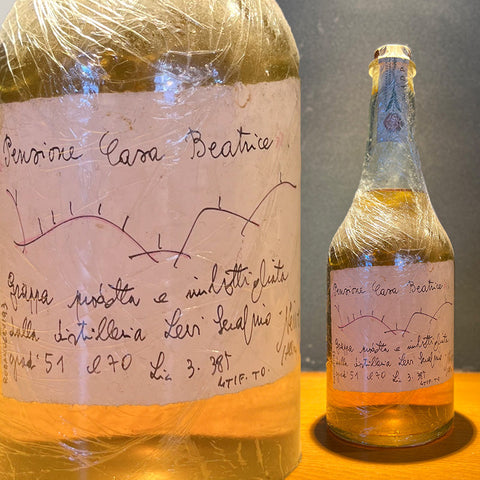 Pensione Casa Beatrice
Grappa prodotta e imbottigliata
dalla distilleria Levi Serafino
gradi 51 cl 70 Lic 3. 385
UTIF. TO.
Pensione Casa Beatrice
Grappa prodotta e imbottigliata
dalla distilleria Levi Serafino
gradi 51 cl 70 Lic 3. 385
UTIF. TO.